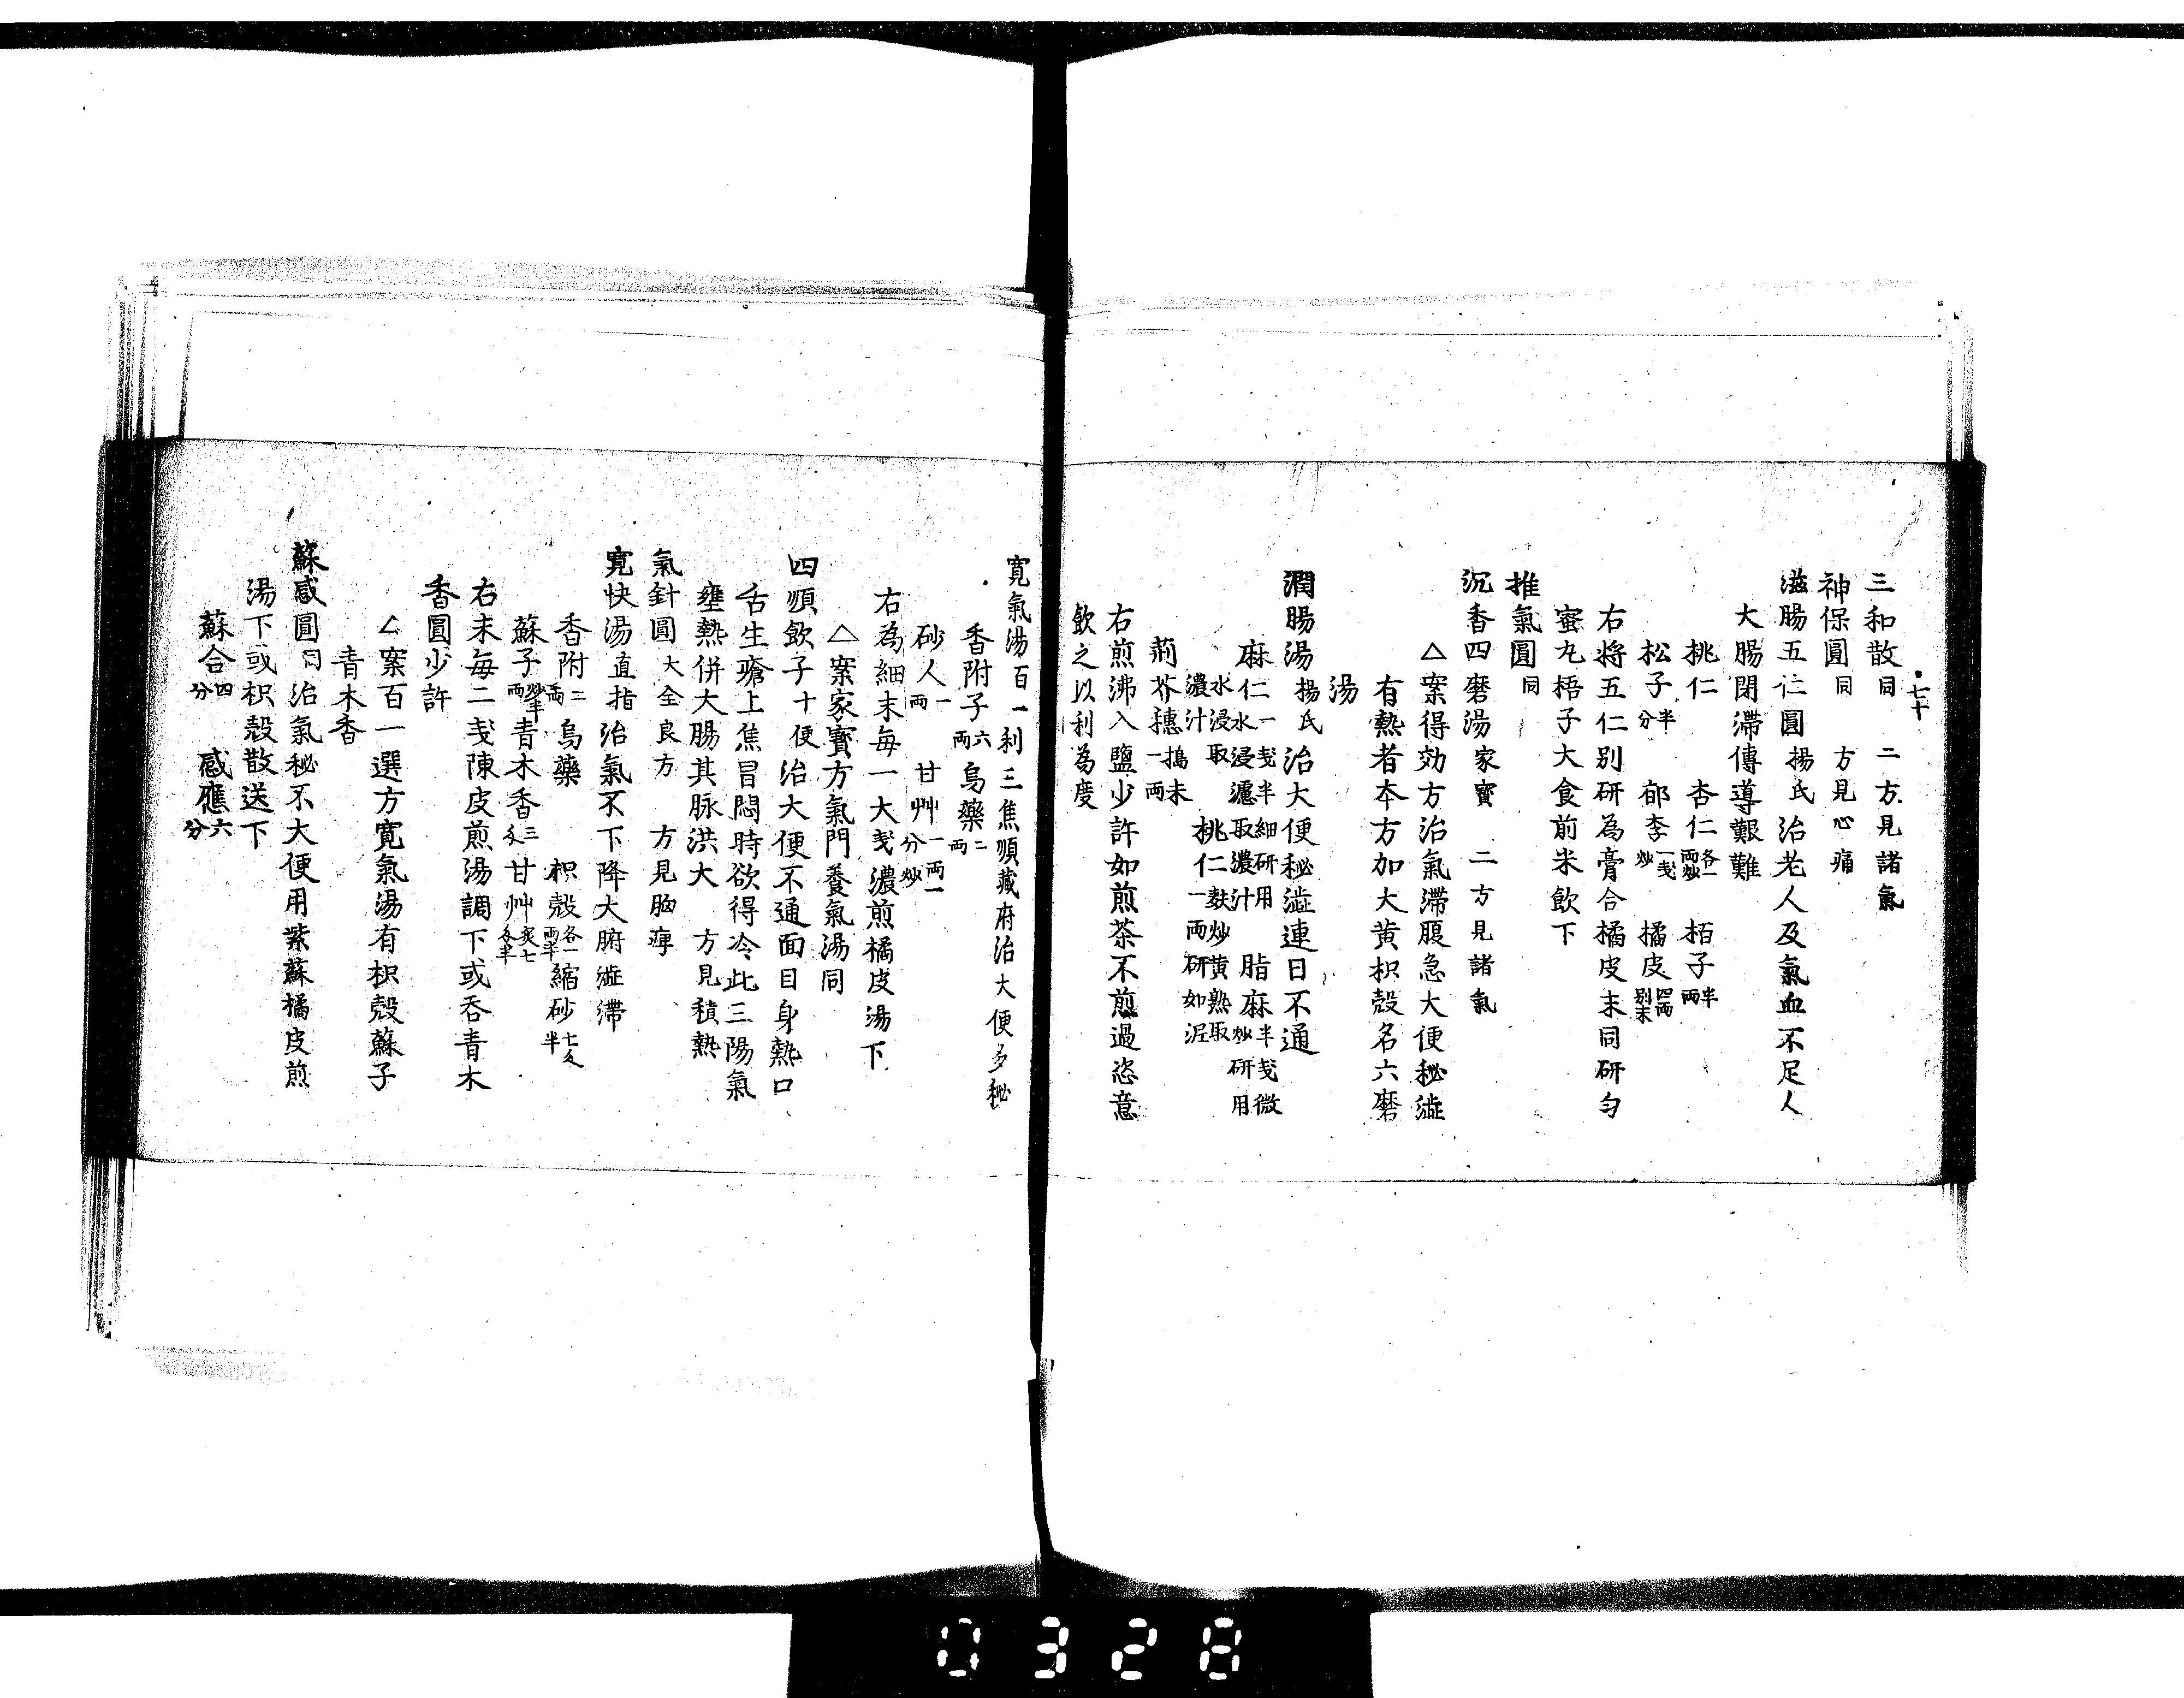 七十
三和散同 二方見諸氣
神保圓同 方見心痛
滋腸五仁圓 揚氏 治老人及氣血不足人
大腸閉滯傳導艱難
桃仁 杏仁各一兩炒 栢子半兩
松子半分 郁李一戔炒 橘皮四兩別末
右将五仁别研為膏合橘皮末同研勻
蜜丸梧子大食前米飲下
推氣圓同
沉香四磨湯家寳 二方見諸氣
△案得効方治氣滯腹急大便秘澁
有熱者夲方加大黄枳殻名六磨
湯
潤腸湯揚氏 治大便秘澁連日不通
麻仁二一戔半細研用水浸漉取濃汁 脂麻半戔微炒研用
水浸取濃汁 桃仁一麩炒黄熟取一兩研如泥
荊芥穗搗末一兩
右煎沸入鹽少許如煎茶不煎過恣意
飲之以利為度
寛氣湯百一利三焦順藏府治大便多秘
香附子六兩 烏藥二兩
砂人一兩 甘艸一兩一分炒
右為細末每一大戔濃煎橘皮湯下
△案家寳方氣門養氣湯同
四順飲子十便 治大便不通面目身熱口
舌生瘡上焦冒悶時欲得冷此三陽氣
壅熱併大腸其脉洪大 方見積熱
氣針圓大全良方 方見胸痺
寛快湯直指 治氣不下降大腑澁滯
香附二兩 烏藥 枳殻各一兩半 縮砂七匁半
蘇子炒半兩 青木香三匁 甘艸炙七匁半
右末每二戔陳皮煎湯調下或吞青木
香圓少許
△案百一選方寛氣湯有枳殻蘇子
青木香
蘇感圓同 治氣秘不大便用紫蘇橘皮煎
湯下或枳殻散送下
蘇合四分 感應六分
0328